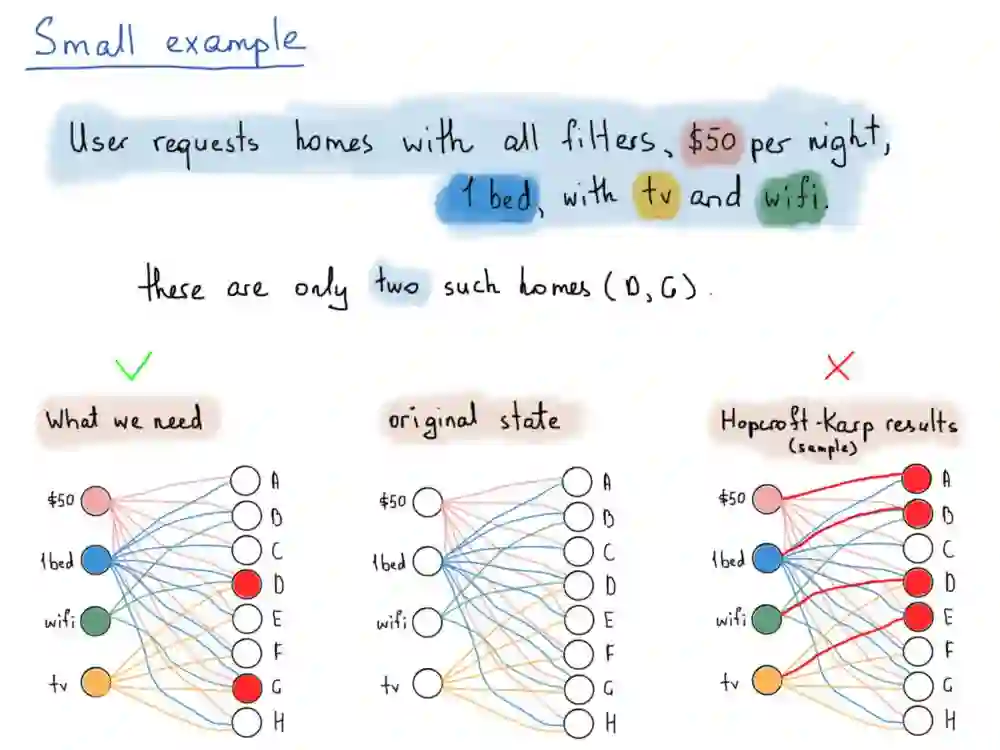 Small example
User requests homes with all filters, $50 per night,
1 bed, with tv and wifi.
there are only two such homes (D, G).
What we need
$50
1bed
wifi
tv
A
B
C
D
E
F
G
H
original state
$50
1bed
wifi
tv
A
B
C
D
E
F
G
H
Hopcroft-Karp results
(sample)
$50
1bed
wifi
tv
A
B
C
D
E
F
G
H